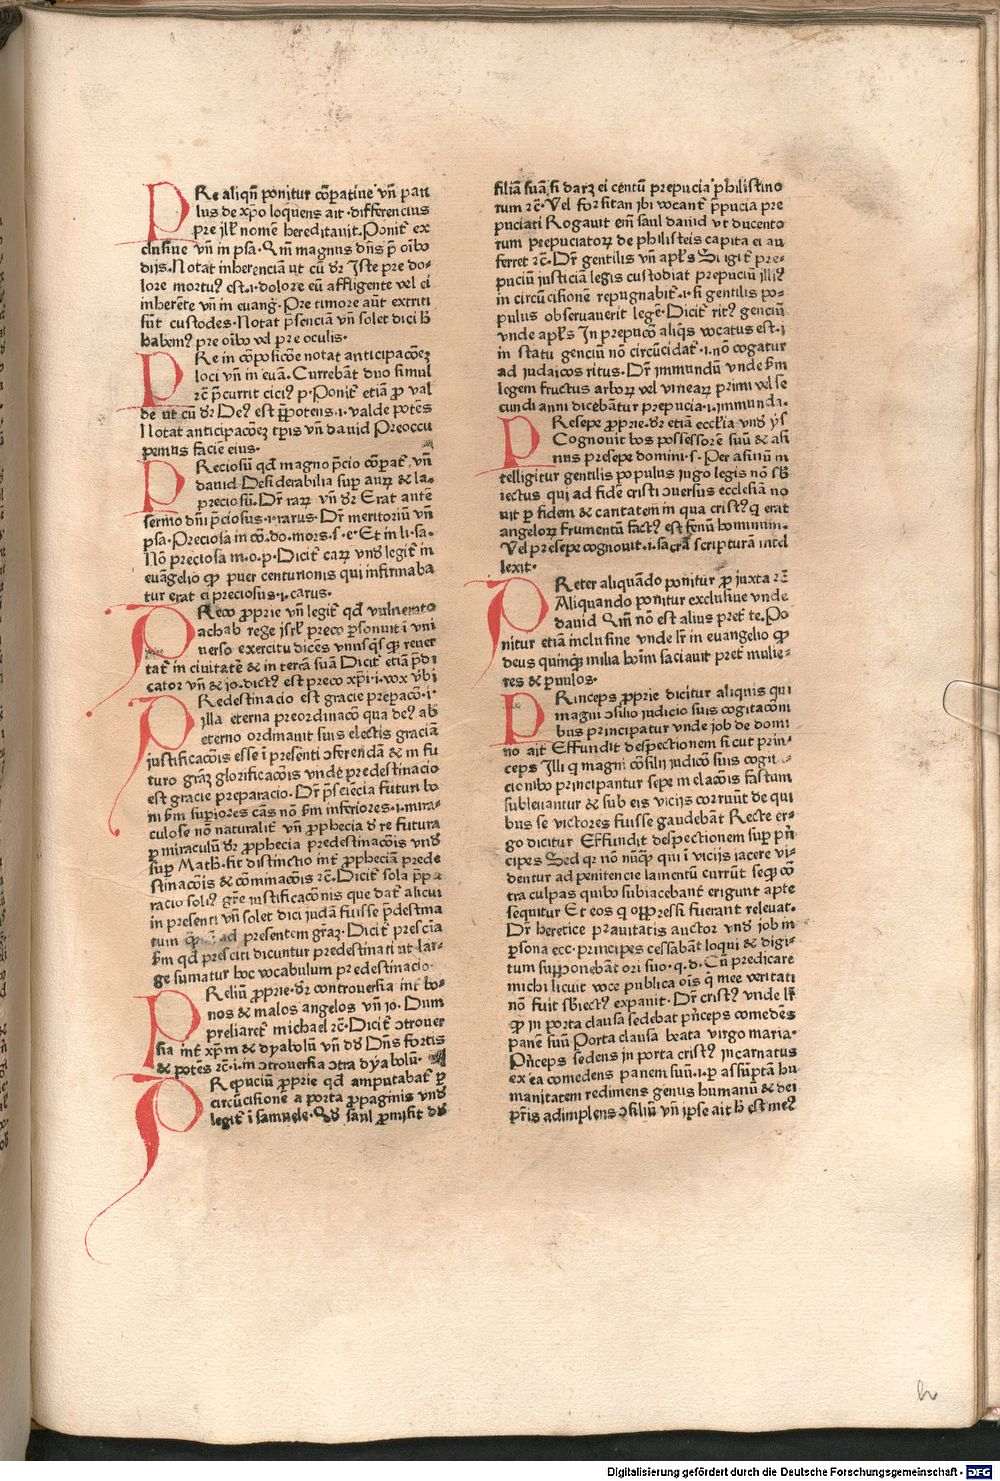 PRe aliqñ ponitur cõpatiue vñ pau
lus de xp̄o loquens ait·differencius
pre ill̄ nomē hereditauit·Ponit̄ ex
clusiue vñ in psa·Qm̄ magnus dñs p̄ oībȝ
dijs·Notat inherenciā ut cū dr̄ Iste pre do-
lore mortuꝰ est·i·dolore eū affligente vel ei
inherēte vñ in euang̃·Pre timore aūt extriti
sūt custodes·Notat p̄senciā vñ solet dici h̄
habemꝰ pre oībȝ vl̄ pre oculis·
PRe in cōposicōe notat anticipacōeȝ
loci vñ in euā·Currebāt duo simul
ꝛc̄ p̄currit ciciꝰ p·Ponit̄ etiā ꝓ val
de ut cū dr̄ Deꝰ est p̄potens·i·valde potēs
Notat anticipacōeȝ tp̄is vñ dauid Preoccu
pemus faciē eius·
PReciosū qd̄ magno p̄cio cōpat̄ vñ
dauid Desiderabilia sup̄ auꝝ & la-
preciosū·Dr̄ raꝝ vñ dr̄ Erat autē
sermo dñi p̄ciosus·i·rarus·Dr̄ meritoriū vñ
psa·Preciosa in cō·do·mors·s·eꝰ Et in li·sa·
Nō preciosa m·o·p·Dicit̄ caꝝ vnd̄ legit̄ in
euāgelio ꝙ puer centurionis qui infirmaba
tur erat ei preciosus·i·carus·
PReco ꝓprie vñ legit̄ qd̄ vulnerato
achab rege isrl̄ preco p̄sonuit ī vni
uerso exercitu dicēs vnusqs̄qȝ reuer
tat̄ in ciuitatē & in terrā suā Dicit̄ etiā p̄di
cator vñ & io·dictꝰ est preco xp̄i·i·vox v̄bi
PRedestinacio est gracie prepacō·i·
illa eterna preordinacō qua deꝰ ab
eterno ordinauit suis electis graciā
iustificacōis esse ī presenti ↄferendā & in fu
turo gr̄aȝ glorificacōis vnde predestinacio
est gracie preparacio·Dr̄ p̄sciēcia futuri bo
ni h̄m sup̄iores cās nō h̄m inferiores·i·mira-
culose nō naturalit̄ vñ ꝓphecia d̄ re futura
ꝑ miraculū dr̄ ꝓphecia predestinacōis vnd̄
sup̄ Math·fit distinctio int̄ ꝓpheciā prede
stinacōis & cōminacōis ꝛc̄·Dicit̄ sola p̄pa
racio soliꝰ gr̄e iustificacōnis que dat̄ alicui
in presenti vñ solet dici iudā fuisse p̄destina
tum ad presentem gr̄aȝ·Dicit̄ prescia
h̄m qd̄ presciti dicuntur predestinati ut lar-
ge sumatur hoc vocabulum predestinacio·
PReliū ꝓprie·dr̄ controuersia int̄ bo-
nos & malos angelos vñ io·Dum
preliaret̄ michael ꝛc̄·Dicit̄ ↄtrouer
sia int̄ xp̄m & dyabolū vñ dd̄ Dñs fortis
& potēs ꝛc̄·i·in ↄtrouersia ↄtra dyabolū·
PRepuciū ꝓprie qd̄ amputabat̄ ꝑ
circūcisionē a porta ꝓpaginis vnd̄
legit̄ ī samuele·Qd̄ saul ꝓmisit dd̄
filiā suā si daꝝ ei centū prepucia philistino
rum ꝛc̄·Vel forsitan ibi vocant̄ p̄pucia pre
puciati Rogauit em̄ saul dauid vt ducento
rum prepuciatoꝝ de philisteis capita ei au
ferret ꝛc̄·Dr̄ gentilis vñ apl̄s Si igit̄ pre-
puciū iusticiā legis custodiat prepuciū illiꝰ
in circūcisione repugnabit̄·i·si gentilis po-
pulus obseruauerit legē·Dicit̄ ritꝰ genciū
vnde apl̄s In prepucō aliqs̄ vocatus est·i
in statu genciū nō circūcidat̄·i·nō cogatur
ad iudaicos ritus·Dr̄ immundū vnde h̄m
legem fructus arboꝝ vel vineaꝝ primi vel se
cundi anni dicebātur prepucia·i·immunda·
PResepe ꝓprie·dr̄ etiā eccl̄ia vnd̄ ys̄
Cognouit bos possessorē suū & asi
nus presepe domini·s·Per asinū in
telligitur gentilis populus iugo legis nō sb̄
iectus qui ad fidē cristi ↄuersus ecclesiā no
uit ꝑ fidem & caritatem in qua cristꝰ q̄ erat
angeloꝝ frumentū factꝰ est fenū hominum·
Vel presepe cognouit·i·sacrā scripturā intel
lexit·
PReter aliquādo ponitur ꝓ iuxta ꝛc̄
Aliquando ponitur exclusiue vnde
dauid Qm̄ nō est alius pret̄ te·Po
nitur etiā inclusiue vnde lr̄ in euangelio ꝙ
deus quinqȝ milia hoīm saciauit pret̄ mulie-
res & p̄uulos·
PRinceps ꝓprie dicitur aliquis qui
magni ↄsilio iudicio suis cogitacōni
bus principatur vnde iob de domi
no ait Effundit despectionem sicut prin-
ceps Illi q̄ magni cōsilij iudicō suis cogit
cionibȝ principantur sepe in elacōis fastum
subleuantur & sub eis vicijs corruūt de qui
bus se victores fuisse gaudebāt Recte er-
go dicitur Effundit despectionem sup̄ p̄n
cipes Sed qr̄ nō nūqȝ qui ī vicijs iacere vi-
dentur ad penitencie lamentū currūt seqȝ cō
tra culpas quibȝ subiacebant erigunt apte
sequitur Et eos q̄ oppressi fuerant releuat·
Dr̄ heretice prauitatis auctor vnd̄ iob in
p̄sona ecc·principes cessabāt loqui & digi-
tum supponebāt ori suo·q·d·Cū predicare
michi licuit voce publica oīs q̄ mee veritati
nō fuit sb̄iectꝰ expauit·Dr̄ cristꝰ vnde lr̄
ꝙ in porta clausa sedebat p̄nceps comedēs
panē suū Porta clausa beata virgo maria·
Pn̄ceps sedens in porta cristꝰ incarnatus
ex ea comedens panem suū·i·ꝑ assūptā hu
manitatem redimens genus humanū & dei
p̄ris adimplens ↄsiliū vñ ipse ait h̄ est meꝰ
h
Digitalisierung gefördert durch die Deutsche Forschungsgemeinschaft - DFG